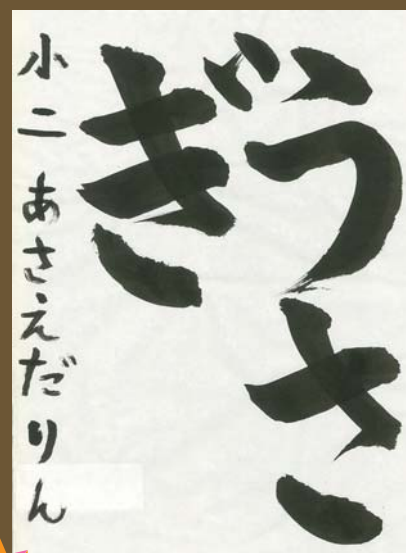 うさ
ぎ
小二 あさえだりん